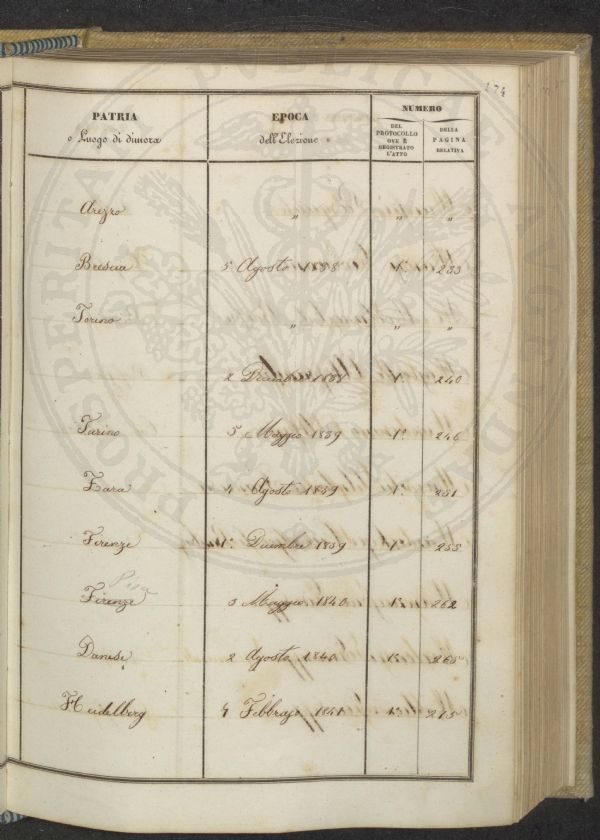 174
PATRIA
o Luogo di dimora
EPOCA
dell'Elezione
NUMERO
DEL PROTOCOLLO OVE È REGISTRATO L'ATTO
DELLA PAGINA RELATIVA
Arezzo " " "
Brescia 5 Agosto 1838 1°. 233
Torino " " "
2 Dicembre 1838 1°. 240
Torino 5 Maggio 1839 1°. 246
Zara 4 Agosto 1839 1°. 251
Firenze 1°. Dicembre 1839 1°. 255
Pisa
Firenze 3 Maggio 1840 1°. 262
Danese 2 Agosto 1840 1°. 265
Heidelberg 7 Febbrajo 1841 1°. 275
PROSPERITATI PUBLICAE AUGENDAE